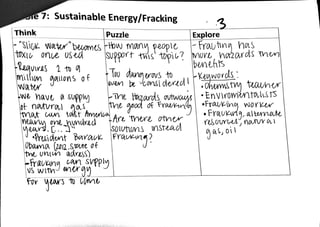 le 7: Sustainable Energy/Fracking
3
Think
- "Slick water" becomes
toxic once used
- Requires 2 to 9
million gallons of
water
- We have a supply
of natural gas
that can last America
nearly one hundred
years. [...]"
- President Barack
Obama (2012 State of
the Union adress)
- Fracking can supply
us with energy
for years to come
Puzzle
- How many people
support this topic?
- Too dangerous to
even be considered!
- The hazards outways
the good of Fracking
- Are there other
solutions instead
Fracking?
Explore
- Fracting has
more hazards then
benefits
- Keywords:
• Chemistry teacher
• Enviromentalists
• Fracking worker
• Fracking, alternate
resources, natural
gas, oil